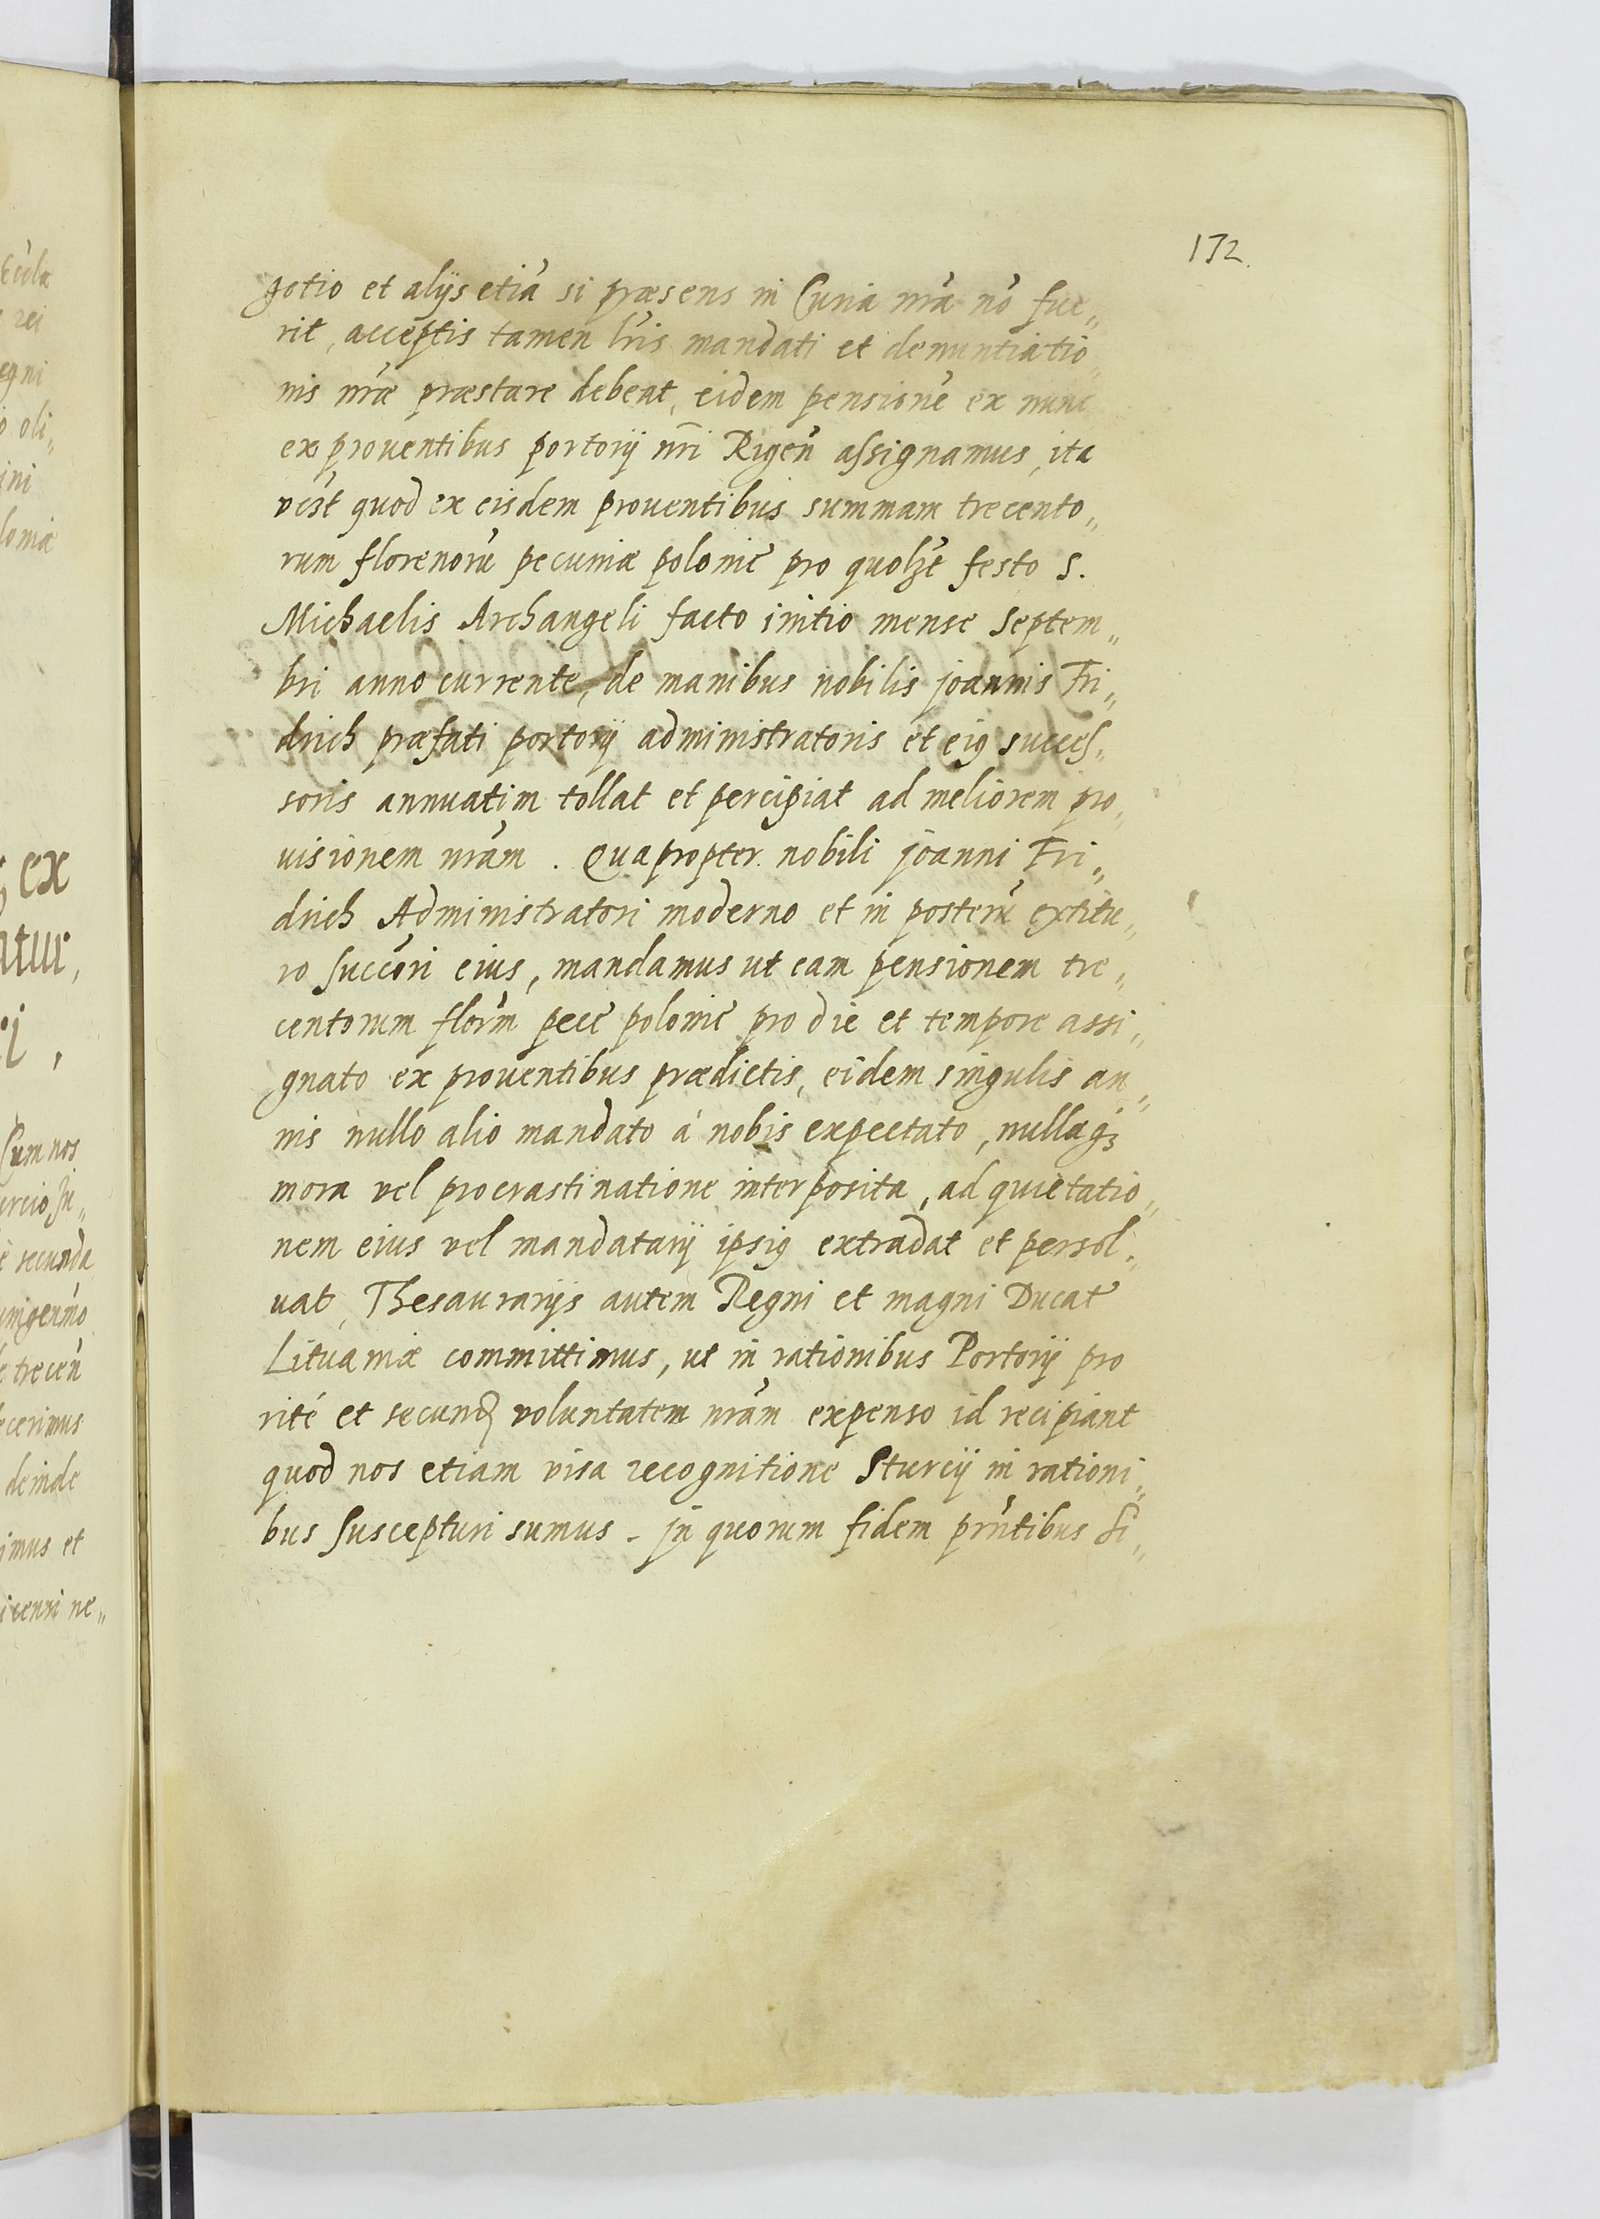 132.
gotio et alijs etiã si præsens in Curia nr̃a nõ fue„
rit, acceptis tamen lr̃is mandati et denuntiatio„
nis nr̃æ præstare debeat, eidem pensionẽ ex nunc
ex prouentibus portorij nr̃i Rigeñ assignamus, ita
vt quod ex eisdem prouentibus summam trecento„
rum florenorũ pecuniæ poloniē pro quolꝫt festo S.
Michaelis Archangeli facto initio mense Septem„
bri anno currente, de manibus nobilis joannis Fri„
drich præfati portorij administratoris et eiꝰ succes„
soris annuatim tollat et percipiat ad meliorem pro„
uisionem nr̃am. Quapropter nobili joanni Fri„
drich Administratori moderno et in posterũ extitu„
ro succõri eius, mandamus ut eam pensionem tre„
centorum flor̃m pecē poloniē pro die et tempore assi„
gnato ex prouentibus prædictis, eidem singulis an„
nis nullo alio mandato á nobis expectato, nullaqꝫ
mora vel procrastinatione interposita, ad quietatio„
nem eius vel mandatarij ipsiꝰ extradat et persol„
uat, Thesaurarijs autem Regni et magni Ducat̃
Lituaniæ committimus, ut in rationibus Portorij pro
rité et secund voluntatem nr̃am expenso id recipiant
quod nos etiam visa recognitione Sturcij in rationi„
bus suscepturi sumus. jn quorum fidem prñtibus Si„
Cum nos
secunda
trecen̄
cerimus
deinde
imus et
ex
atur,